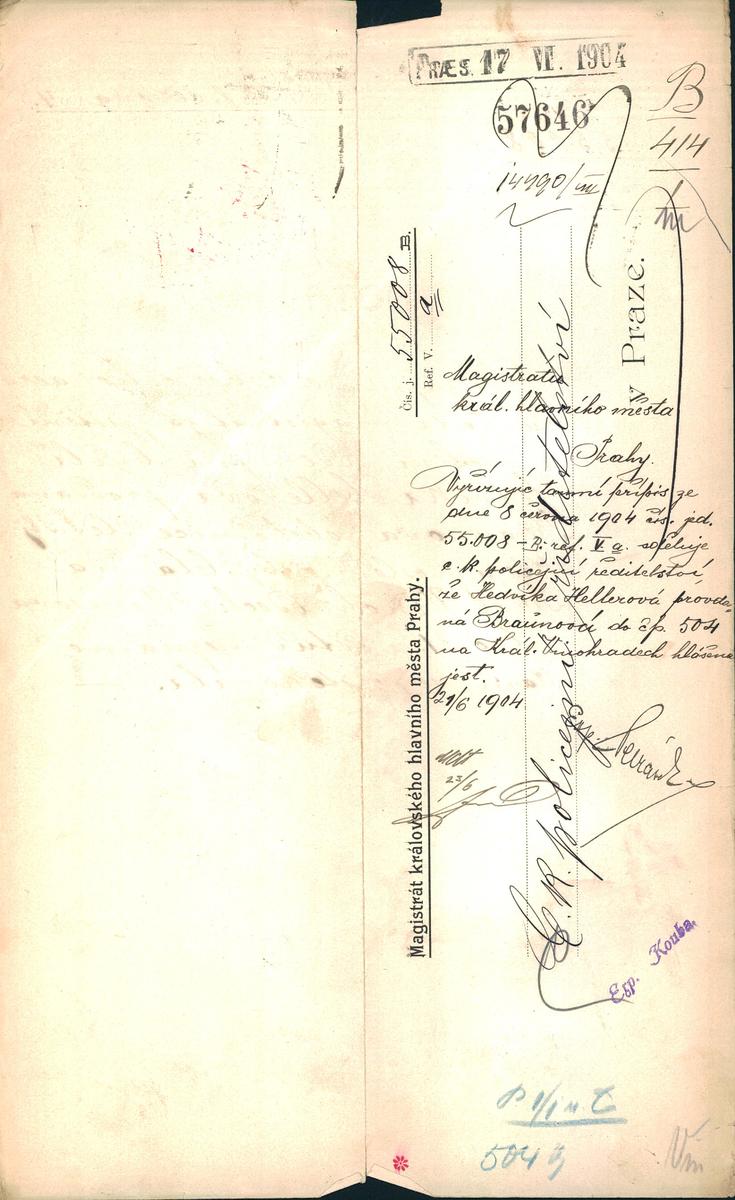 PRÆS. 17 VI. 1904
57646
14990/III
B
414
Čís. j. 55008 B.
Ref. V. a
v Praze.
Magistrátu
král. hlavního města
Prahy.
Vyřizujíc tamní přípis ze
dne 8 června 1904 čís. jed.
55.008 - B. ref. V a. sděluje
c. k. policejní ředitelství,
že Hedvika Hellerová provda-
ná Braunová do čp. 504
na Král. Vinohradech hlášena
jest.
21/6 1904
23/6
Magistrát královského hlavního města Prahy.
C. k. policejní ředitelství
Exp. Kouba.
504